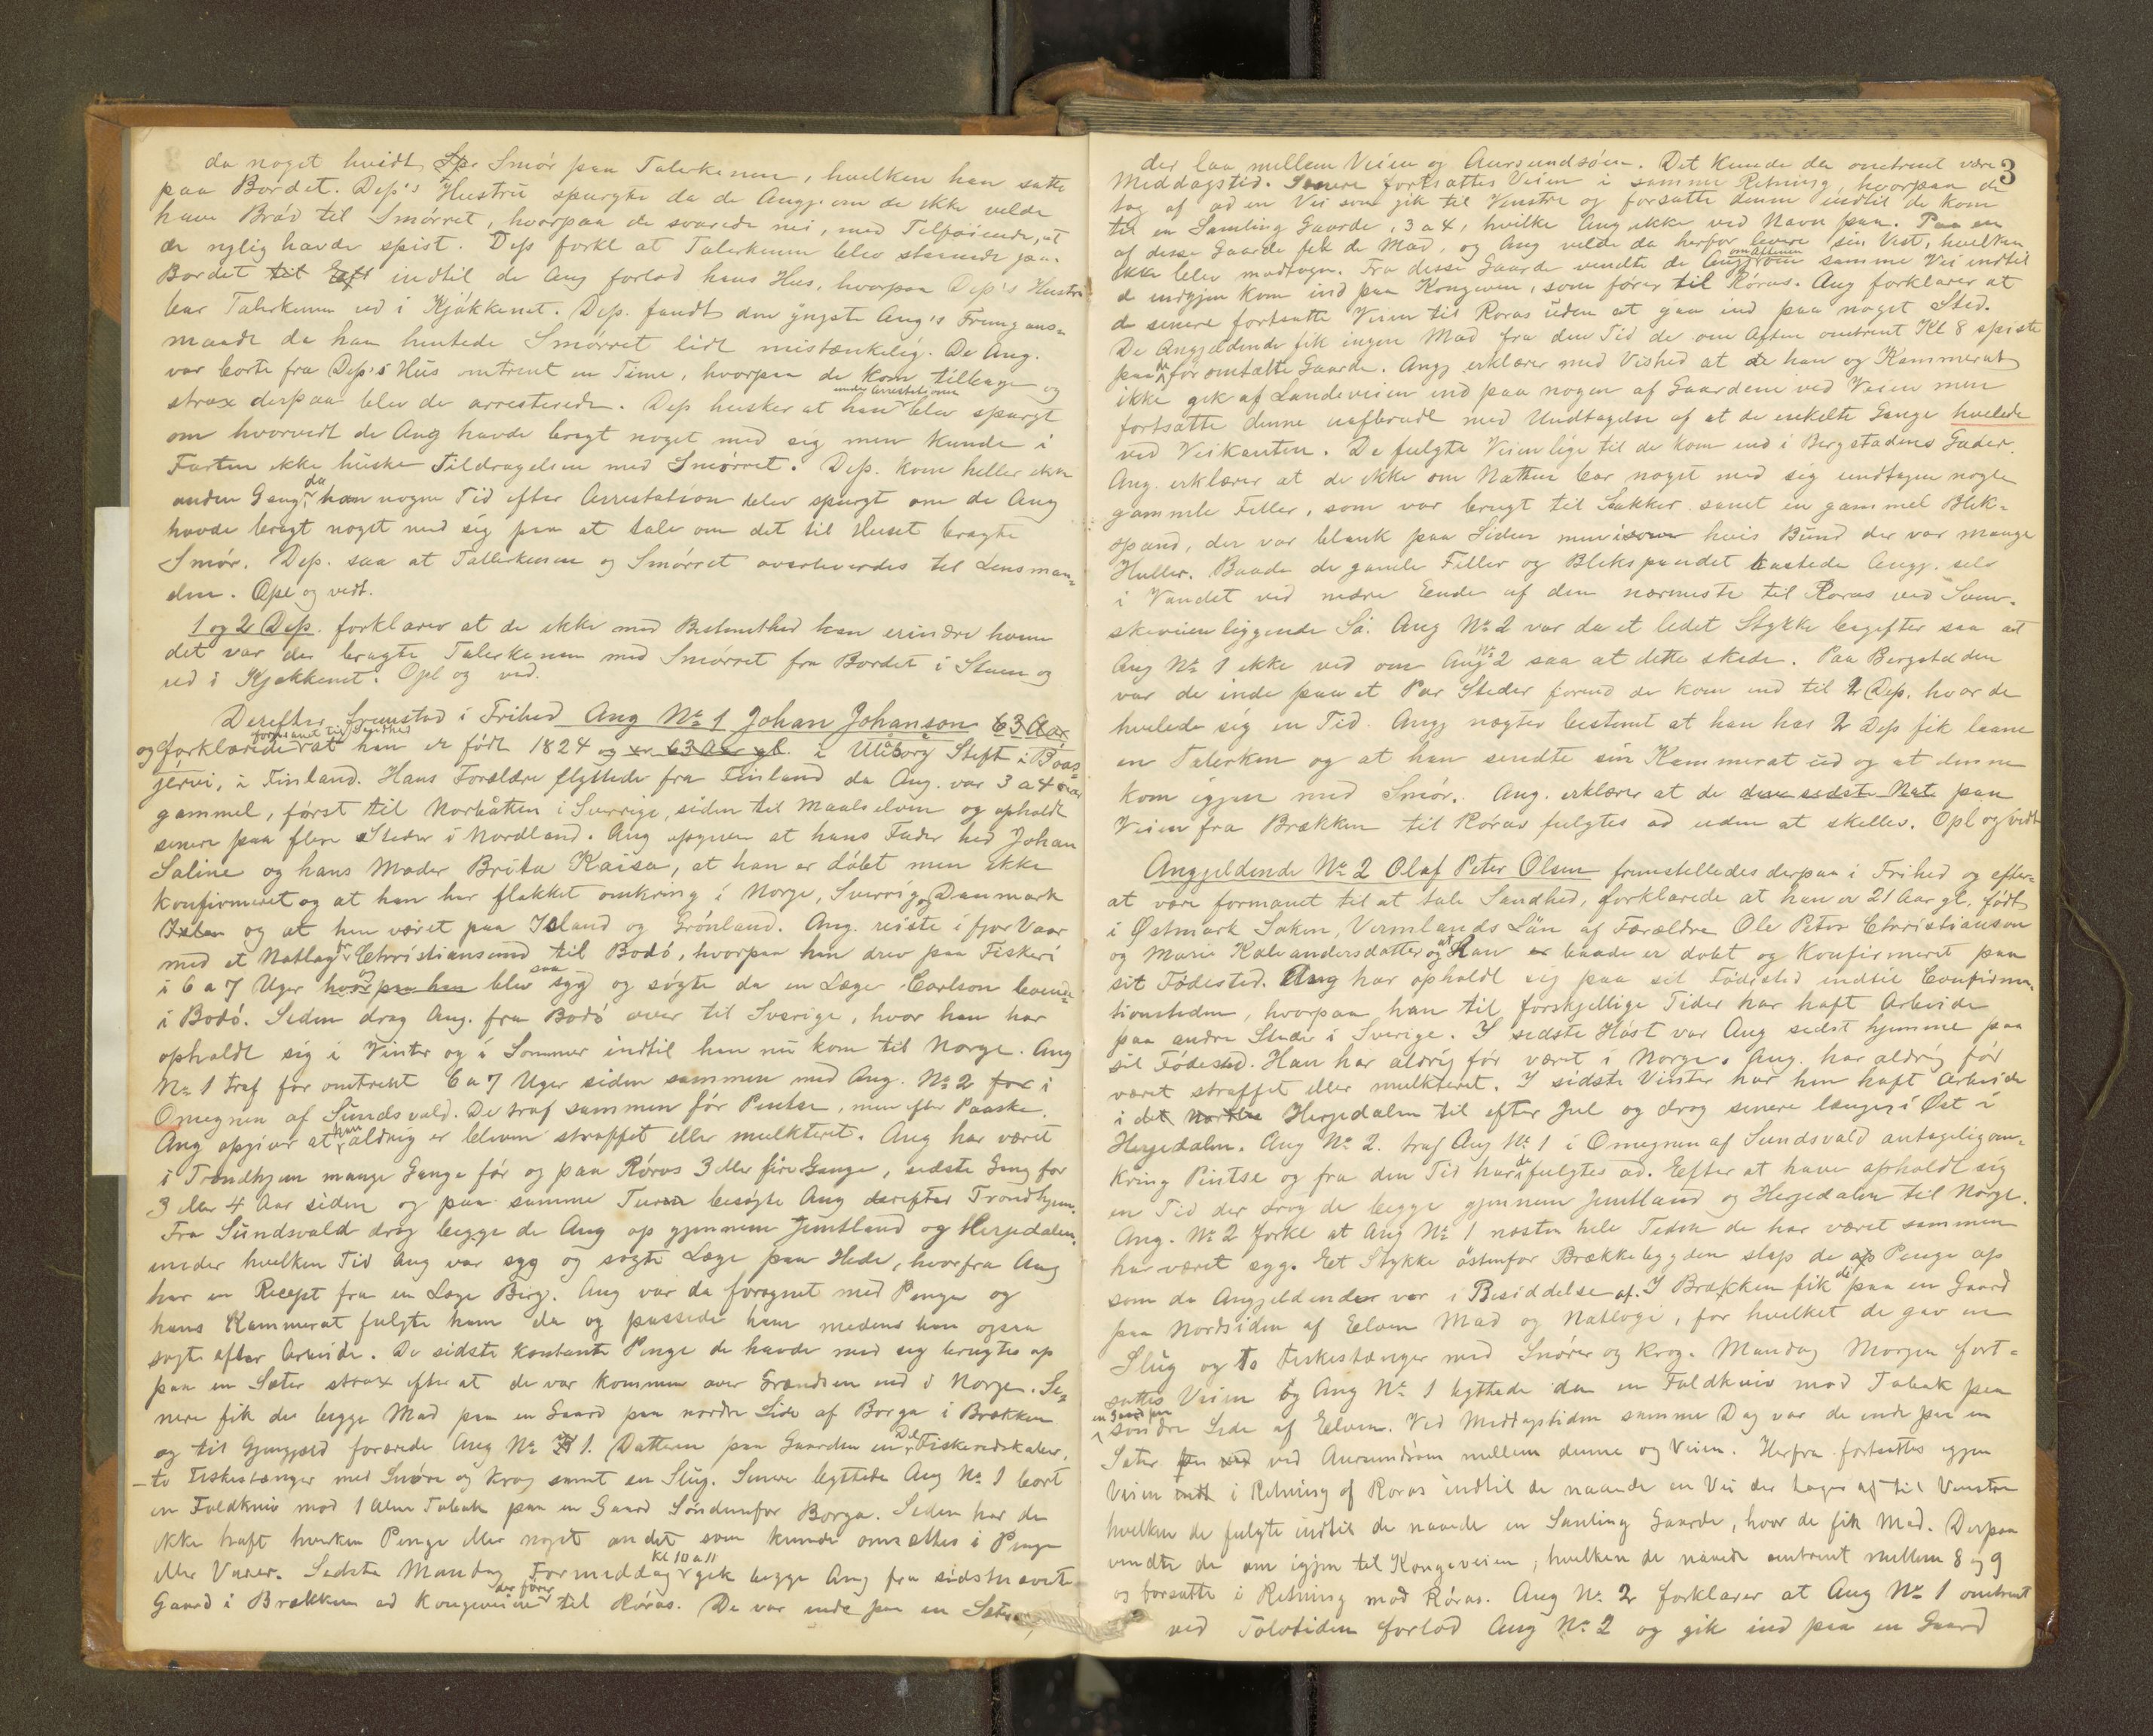 da noget hvidt, Spr Smør paa Talerkenen, hvelken han satte
paa Bordet. Dep's Hustru spurgte da de Angj. om de ikke vilde
have Brød til Smørret, hvorpaa de svarede nei, med Tilføiende, at
de nylig havde spist. Dep forkl at Talerkenen blev staaende paa
Bordet til Eft indtil de Ang forlod hans Hus, hvorpaa Dep's Hustru
bar Talerkenen ud i Kjøkkenet. Dep. fandt den yngste Ang's Fremgangs-
maade da han hentede Smørret lidt mistænkelig. De Ang.
var borte fra Dep's Hus omtrent en Time, hvorpaa de kom tilbage og
strax derpaa blev de arresterede. Dep husker at han under Arrestationen blev spurgt
om hvorvidt de Ang havde bragt noget med sig men kunde i
Farten ikke huske Tildragelsen med Smørret. Dep. kom heller ikke
anden Gang, da han nogen Tid efter Arrestation blev spurgt om de Ang
havde bragt noget med sig paa at tale om det til Huset bragte
Smør. Dep. saa at Tallerkenen og Smørret overleverdes til Lensman-
den. Opl og vedt.
1 og 2 Dep. forklarer at de ikke med Bestemthed kan erindre hvem
det var der bragte Talerkenen med Smørret fra Bordet i Stuen og
ud i Kjøkkenet. Opl og ved.
Derefter fremstod i Frihed Ang No 1 Johan Johanson 63 Aar
og forklarede formanet til Sandhed at han er født 1824 og er 63 Aar gl. i Uleåborg Stift i
jervi, i Finland. Hans Forældre flyttede fra Finland da Ang. var 3 a 4 Aar
gammel, først til Norbåtten i Sverrige, siden til Maalselven og opholdt
senere paa flere Steder i Nordland. Ang opgiver at hans Fader hed Johan
Saline og hans Moder Brita Kaisa, at han er døbt men ikke
konfirmeret og at han har flakket omkring i Norge, Sverrig og Danmark
og at han været paa Island og Grønland. Ang. reiste i fjor Vaar
med et Notlag fr Christiansund til Bodø, hvorpaa han drev paa Fiskeri
i 6 a 7 Uger hvorpaa han blev saa syg og søgte da en Læge Carlson
i Bodø. Siden drog Ang. fra Bodø over til Sverige, hvor han har
opholdt sig i Vinter og i Sommer indtil han nu kom til Norge. Ang
No 1 traf for omtrent 6 a 7 Uger siden sammen med Ang. No 2 for i
Omegnen af Sundsvald. De traf sammen før Pintse, men efter Paaske.
Ang opgiver at han aldrig er bleven straffet eller mulkteret. Ang har været
i Trondhjem mange Gange før og paa Røros 3 eller fire Gange, sidste Gang for
3 eller 4 Aar siden og paa samme Turen besøgte Ang derefter Trondhjem.
Fra Sundsvald drog begge de Ang op gjennem Jemtland og Herjedalen,
under hvelken Tid Ang var syg og søgte Læge paa Hede, hvorfra Ang
har en Recept fra en Læge Berg. Ang var da forsynet med Penge og
hans Kammerat fulgte ham da og passede ham medens han ogsaa
søgte efter Arbeide. De sidste kontante Penge de havde med sig brugtes op
paa en Sæter strax efter at de var kommen over Grændsen ind i Norge. Se-
nere fik de begge Mad paa en Gaard paa nordre Side af Borga i Brækken
og til Gjengjæld forærede Ang No 1. Datteren paa Gaarden en Del Fiskeredskaber,
to Fiskestænger med Snøre og Krog samt en Slug. Senere byttede Ang No 1 bort
en Foldkniv mod 1 Alen Tobak paa en Gaard Søndenfor Borga. Siden har de
ikke haft hverken Penge eller noget andet som kunde omsættes i Penge
eller Varer. Sidste Mandag Formiddag Kl 10 a 11 gik begge Ang fra sidstnævnte
Gaard i Brækken ad Kongeveien der fører til Røros. De var inde paa en Sæter,
3
der laa mellem Veien og Aursundsøen. Det kunde da omtrent være
Middagstid. Senere fortsattes Veien i samme Retning, hvorpaa de
tog af ad en Vei som gik til Venstre og forsatte denne indtil de kom
til en Samling Gaarde, 3 a 4, hvilke Ang ikke ved Navn paa. Paa en
af desse Gaarde fik de Mad, og Ang vilde da herfor levere sin Vest, hvelken
ikke blev modtagen. Fra desse Gaarde vendte de Ang om Aftenen samme Vei indtil
de indgjen kom ind paa Kongeveien, som fører til Røros. Ang forklarer at
de senere fortsatte Veien til Røros uden at gaa ind paa noget Sted.
De Angjældende fik ingen Mad fra den Tid de om Aften omtrent Kl 8 spiste
paa de foromtalte Gaarde. Angj erklærer med Vished at de han og Kammerat
ikke gik af Landeveien ind paa nogen af Gaardene ved Veien men
fortsatte denne uafbrudt med Undtagelse af at de enkelte Gange hvelede
ved Veikanten. De fulgte Veien lige til de kom ind i Bergstadens Gader.
Ang. erklærer at de ikke om Natten bar noget med sig undtagen nogle
gamle Filler, som var brugt til Sokker samt en gammel Blik-
spand, der var blank paa Siden men i hvis Bund der var mange
Huller. Baade de gamle Filler og Blikspandet kastede Angj. selv
i Vandet ved nedre Ende af den nærmeste til Røros ved Sven-
skeveien liggende Sø. Ang No 2 var da et lidet Stykke bagefter saa at
Ang No 1 ikke ved om Ang No 2 saa at dette skede. Paa Bergstaden
var de inde paa et Par Steder forend de kom ind til 2 Dep. hvor de
hvelede sig en Tid. Angj nægter bestemt at han hos 2 Dep fik laane
en Talerken og at han sendte sin Kammerat ud og at denne
kom igjen med Smør. Ang. erklærer at de den sidste Nat paa
Veien fra Brækken til Røros fulgtes ad uden at skelles. Opl og vedt
Angjeldende No 2 Olaf Peter Olsen fremstilledes derpaa i Frihed og efter-
at være formanet til at tale Sandhed, forklarede at han er 21 Aar gl. født
i Østmark Soken, Vermlands Län af Forældre Ole Peter Christianson
og Marie Kaleandersdatter og at Han er baade er døbt og konfirmeret paa
sit Fødested. Ang har opholdt sig paa sit Fødested indtil Confirma-
tionstiden, hvorpaa han til forskjellige Tider har haft Arbeide
paa andre Steder i Sverige. I sidste Høst var Ang sidst hjemme paa
sit Fødested. Han har aldrig før været i Norge. Ang. har aldrig før
været straffet eller mulkteret. I sidste Vinter har han haft Arbeide
i det Nordre Herjedalen til efter Jul og drog senere længer i Øst i
Herjedalen. Ang No 2. traf Ang No 1 i Omegnen af Sundsvald antageligom-
kring Pintse og fra den Tid har de fulgtes ad. Eefter at have opholdt sig
en Tid der drog de begge gjennem Jemtland og Herjedalen til Norge.
Ang. No 2 forkl at Ang No 1 næsten hele Tiden de har været sammen
har været syg. Eet Stykke østenfor Brækkebygden slap de op Penge op
som de Angjeldender var i Besiddelse af. I Brækken fik de paa en Gaard
paa Nordsiden af Eelven Mad og Natlogi, for hvelket de gav en
Slug og to Fiskestænger med Snører og Krog. Mandag Morgen fort-
sattes Veien og Ang No 1 byttede da en Foldkniv mod Tobak paa
en Gaard paa søndre Side af Eelven. Ved Middagstiden samme Dag var de inde paa en
Sæter ved Aursundsøen mellem denne og Veien. Herfra fortsattes igjen
Veien indt i Retning af Røros indtil de naaede en Vei der tager af til Venstre
hvelken de fulgte indtil de naaede en Samling Gaarde, hvor de fik Mad. Derpaa
vendte de om igjen til Kongeveien, hvelken de naaede omtrent mellem 8 og 9
og forsatte i Retning mod Røros. Ang No 2 forklarer at Ang No 1 omtrent
ved Tolvtiden forlod Ang No 2 og gik ind paa en Gaard